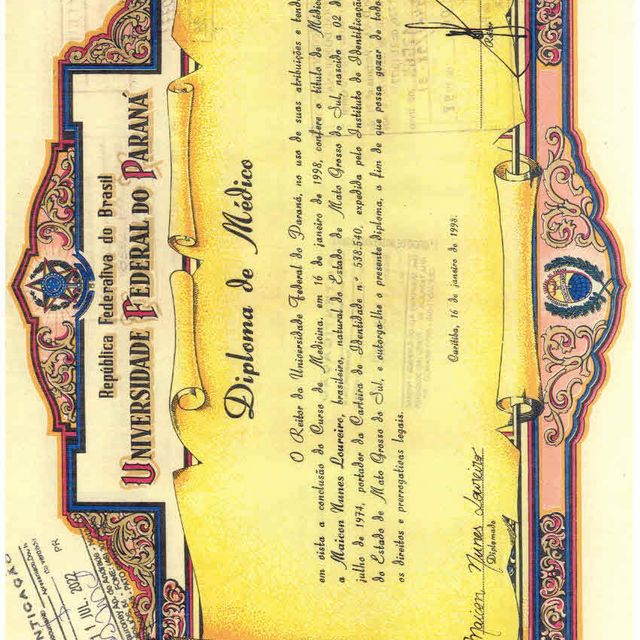 República Federativa do Brasil
UNIVERSIDADE FEDERAL DO PARANÁ
Diploma de Médico
O Reitor da Universidade Federal do Paraná, no uso de suas atribuições e tendo
em vista a conclusão do Curso de Medicina, em 16 de janeiro de 1998, confere o título de Médico
a Maicon Nunes Loureiro, brasileiro, natural do Estado de Mato Grosso do Sul, nascido a 02 de
julho de 1974, portador da Carteira de Identidade n.º 538.540, expedida pelo Instituto de Identificação
do Estado de Mato Grosso do Sul, e outorga-lhe o presente diploma, a fim de que possa gozar de todos
os direitos e prerrogativas legais.
Curitiba, 16 de janeiro de 1998.
Maicon Nunes Loureiro
Diplomado
Reitor
JUL. 2022
PR